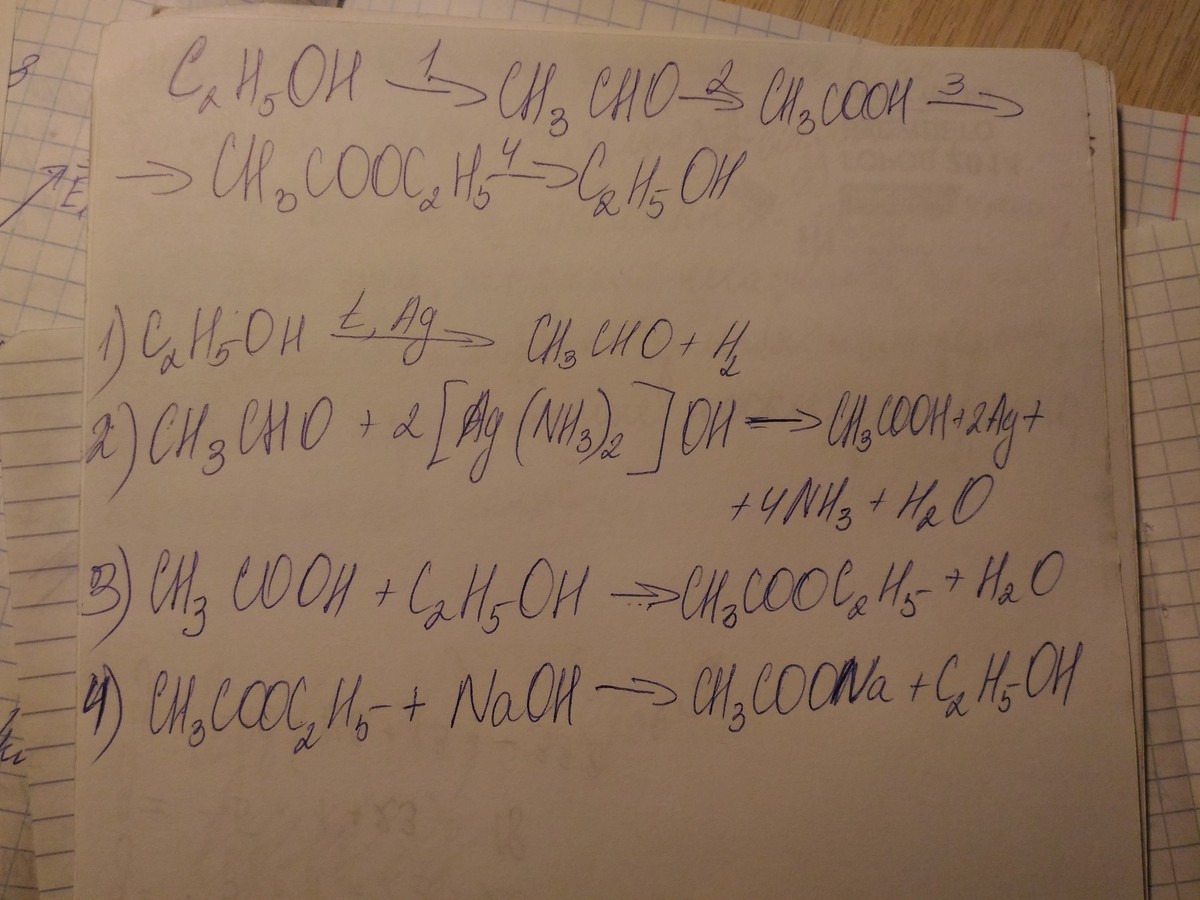 C₂H₅OH —1→ CH₃CHO —2→ CH₃COOH —3→
→ CH₃COOC₂H₅ —4→ C₂H₅OH
1) C₂H₅OH —t, Ag→ CH₃CHO + H₂
2) CH₃CHO + 2[Ag(NH₃)₂]OH → CH₃COOH + 2Ag +
+ 4NH₃ + H₂O
3) CH₃COOH + C₂H₅OH → CH₃COOC₂H₅ + H₂O
4) CH₃COOC₂H₅ + NaOH → CH₃COONa + C₂H₅OH